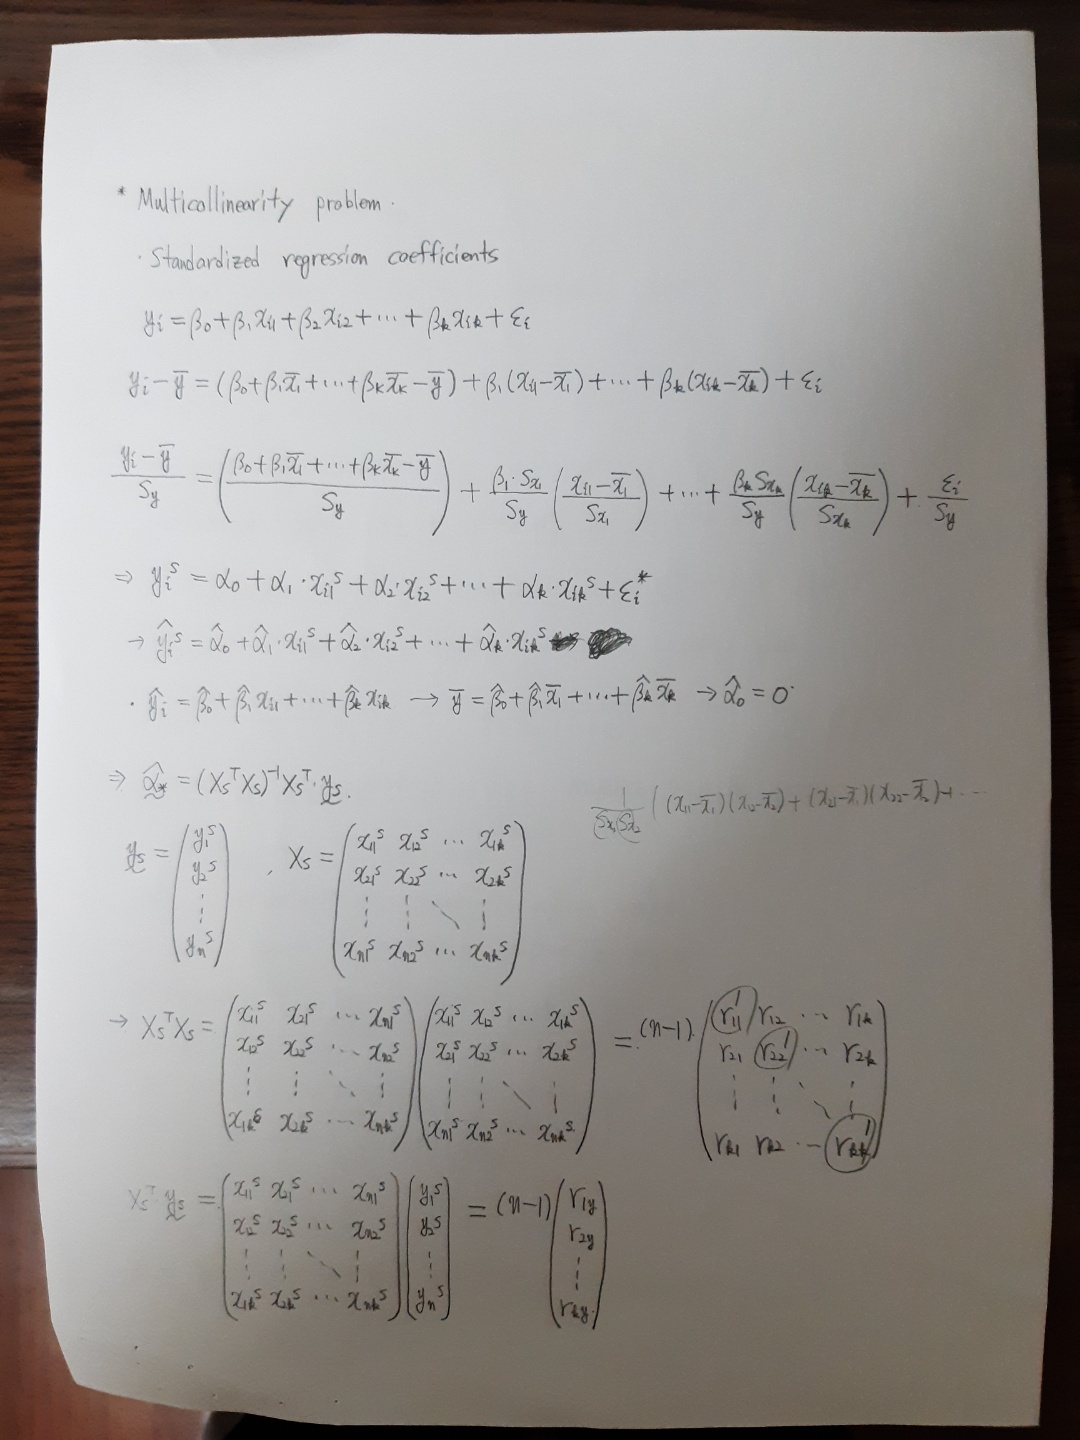 * Multicollinearity problem.
· Standardized regression coefficients
yᵢ = β₀ + β₁xᵢ₁ + β₂xᵢ₂ + ··· + βₖxᵢₖ + εᵢ
yᵢ − ȳ = (β₀ + β₁x̄₁ + ··· + βₖx̄ₖ − ȳ) + β₁(xᵢ₁ − x̄₁) + ··· + βₖ(xᵢₖ − x̄ₖ) + εᵢ
(yᵢ − ȳ)/S_y = ((β₀ + β₁x̄₁ + ··· + βₖx̄ₖ − ȳ)/S_y) + (β₁·S_x₁/S_y)((xᵢ₁ − x̄₁)/S_x₁) + ··· + (βₖS_xₖ/S_y)((xᵢₖ − x̄ₖ)/S_xₖ) + εᵢ/S_y
⇒ yᵢˢ = α₀ + α₁·xᵢ₁ˢ + α₂·xᵢ₂ˢ + ··· + αₖ·xᵢₖˢ + εᵢ*
→ ŷᵢˢ = α̂₀ + α̂₁·xᵢ₁ˢ + α̂₂·xᵢ₂ˢ + ··· + α̂ₖ·xᵢₖˢ
· ŷᵢ = β̂₀ + β̂₁xᵢ₁ + ··· + β̂ₖxᵢₖ → ȳ = β̂₀ + β̂₁x̄₁ + ··· + β̂ₖx̄ₖ → α̂₀ = 0
⇒ α̂* = (X_sᵀX_s)⁻¹X_sᵀ·y_s.
1/(S_x₁S_x₂) ((x₁₁ − x̄₁)(x₁₂ − x̄₂) + (x₂₁ − x̄₁)(x₂₂ − x̄₂) + ···
y_s = (y₁ˢ; y₂ˢ; ⋮; yₙˢ), X_s = (x₁₁ˢ x₁₂ˢ ··· x₁ₖˢ; x₂₁ˢ x₂₂ˢ ··· x₂ₖˢ; ⋮ ⋮ ⋱ ⋮; xₙ₁ˢ xₙ₂ˢ ··· xₙₖˢ)
→ X_sᵀX_s = (x₁₁ˢ x₂₁ˢ ··· xₙ₁ˢ; x₁₂ˢ x₂₂ˢ ··· xₙ₂ˢ; ⋮ ⋮ ⋱ ⋮; x₁ₖˢ x₂ₖˢ ··· xₙₖˢ)(x₁₁ˢ x₁₂ˢ ··· x₁ₖˢ; x₂₁ˢ x₂₂ˢ ··· x₂ₖˢ; ⋮ ⋮ ⋱ ⋮; xₙ₁ˢ xₙ₂ˢ ··· xₙₖˢ) = (n−1)·(r₁₁ 1 r₁₂ ··· r₁ₖ; r₂₁ r₂₂ 1 ··· r₂ₖ; ⋮ ⋮ ⋱ ⋮; rₖ₁ rₖ₂ ··· rₖₖ 1)
X_sᵀ·y_s = (x₁₁ˢ x₂₁ˢ ··· xₙ₁ˢ; x₁₂ˢ x₂₂ˢ ··· xₙ₂ˢ; ⋮ ⋮ ⋱ ⋮; x₁ₖˢ x₂ₖˢ ··· xₙₖˢ)(y₁ˢ; y₂ˢ; ⋮; yₙˢ) = (n−1)(r₁y; r₂y; ⋮; rₖy)